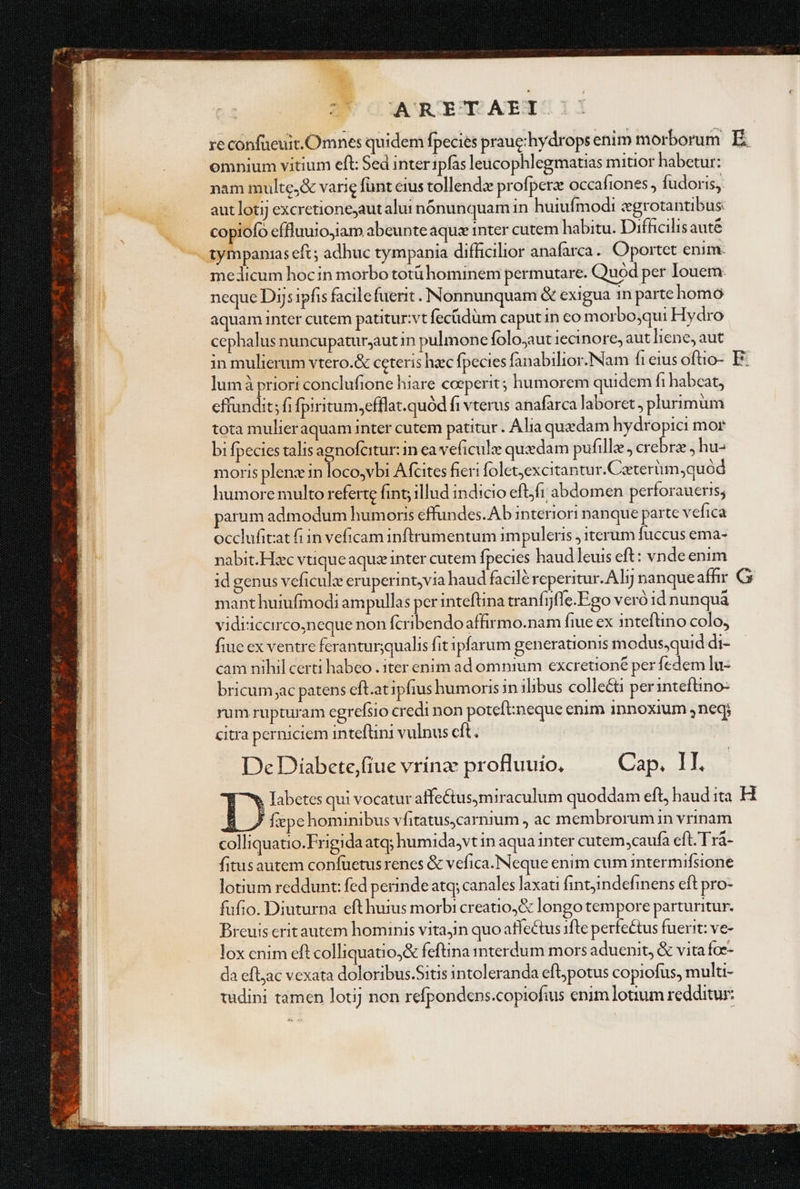 ARETAEI
re confueuit.Omnes quidem fpecies prauę:hydrops enim morborum E
omnium vitium eft: Sed inter ipfas leucophlegmatias mitior habetur:
nam multę,& varię funt eius tollendæ profperæ occafiones, fudoris,
aut lotij excretione,aut alui nónunquam in huiufmodi ægrotantibus
copiofo effluuio,iam abeunte aquæ inter cutem habitu. Difficilis auté
tympanias eft; adhuc tympania difficilior anafarca. Oportet enim
medicum hoc in morbo totũ hominem permutare. Quòd per Iouem
neque Dijs ipfis facile fuerit. Nonnunquam & exigua in parte homo
aquam inter cutem patitur:vt fecũdùm caput in eo morbo,qui Hydro
cephalus nuncupatur,aut in pulmone folo,aut iecinore, aut liene, aut
in mulierum vtero.& cęteris hæc fpecies fanabilior.Nam fi eius oftio- F
lum à priori conclufione hiare cœperit; humorem quidem fi habeat,
effundit; fi fpiritum,efflat.quòd fi vterus anafarca laboret, plurimùm
tota mulier aquam inter cutem patitur. Alia quædam hydropici mor
bi fpecies talis agnofcitur: in ea veficulæ quædam pufillæ, crebræ, hu-
moris plenæ in loco,vbi Afcites fieri folet,excitantur.Cæterùm,quòd
humore multo refertę fint; illud indicio eft,fi abdomen perforaueris,
parum admodum humoris effundes.Ab interiori nanque parte vefica
occlufit:at fi in veficam inftrumentum impuleris, iterum fuccus ema-
nabit.Hæc vtique aquæ inter cutem fpecies haud leuis eft: vnde enim
id genus veficulæ eruperint,via haud facilè reperitur.Alij nanque affir G
mant huiufmodi ampullas per inteftina tranfijffe.Ego verò id nunquã
vidi:iccirco,neque non fcribendo affirmo.nam fiue ex inteftino colo,
fiue ex ventre ferantur;qualis fit ipfarum generationis modus,quid di-
cam nihil certi habeo. iter enim ad omnium excretioné per fedem lu-
bricum,ac patens eft.at ipfius humoris in ilibus collecti per inteftino-
rum rupturam egrefsio credi non poteft:neque enim innoxium, neq;
citra perniciem inteftini vulnus eft.
De Diabete,fiue vrinæ profluuio, Cap. II.
Diabetes qui vocatur affectus,miraculum quoddam eft, haud ita H
fæpe hominibus vfitatus,carnium, ac membrorum in vrinam
colliquatio.Frigida atq; humida,vt in aqua inter cutem,caufa eft.Trã-
fitus autem confuetus renes & vefica.Neque enim cum intermifsione
lotium reddunt: fed perinde atq; canales laxati fint,indefinens eft pro-
fufio. Diuturna eft huius morbi creatio,& longo tempore parturitur.
Breuis erit autem hominis vita,in quo affectus ifte perfectus fuerit: ve-
lox enim eft colliquatio,& feftina interdum mors aduenit, & vita fœ-
da eft,ac vexata doloribus.Sitis intoleranda eft,potus copiofus, multi-
tudini tamen lotij non refpondens.copiofius enim lotium redditur: